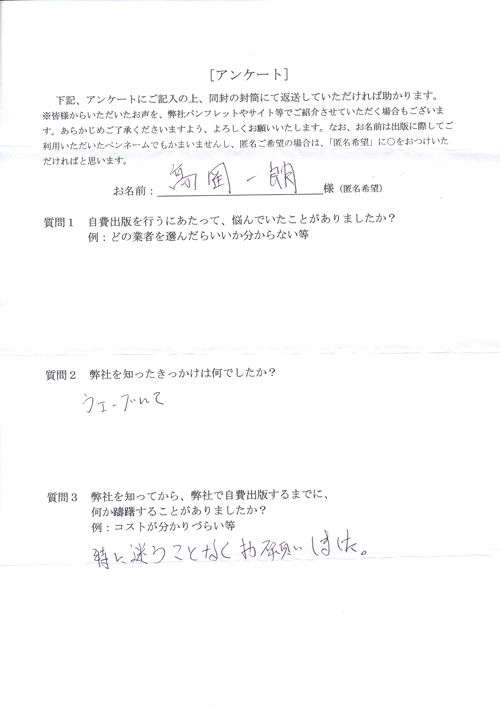 [アンケート]
下記、アンケートにご記入の上、同封の封筒にて返送していただければ助かります。
※皆様からいただいたお声を、弊社パンフレットやサイト等でご紹介させていただく場合もございま
す。あらかじめご了承くださいますよう、よろしくお願いいたします。なお、お名前は出版に際してご
利用いただいたペンネームでもかまいませんし、匿名ご希望の場合は、「匿名希望」に○をおつけいた
だければと思います。
お名前：高岡一朗様（匿名希望）
質問１ 自費出版を行うにあたって、悩んでいたことがありましたか？
例：どの業者を選んだらいいか分からない等
質問２ 弊社を知ったきっかけは何でしたか？
ウェーブにて
質問３ 弊社を知ってから、弊社で自費出版するまでに、
何か躊躇することがありましたか？
例：コストが分かりづらい等
特に迷うことなくお願いしました。